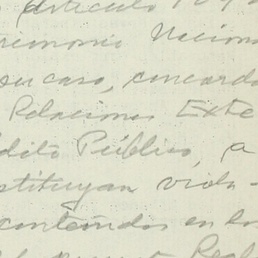 artículo
rimonio Naciona
su caso, concorda
Relaciones Exte
dito Público, a
stituyan viola-
contenidos en lo